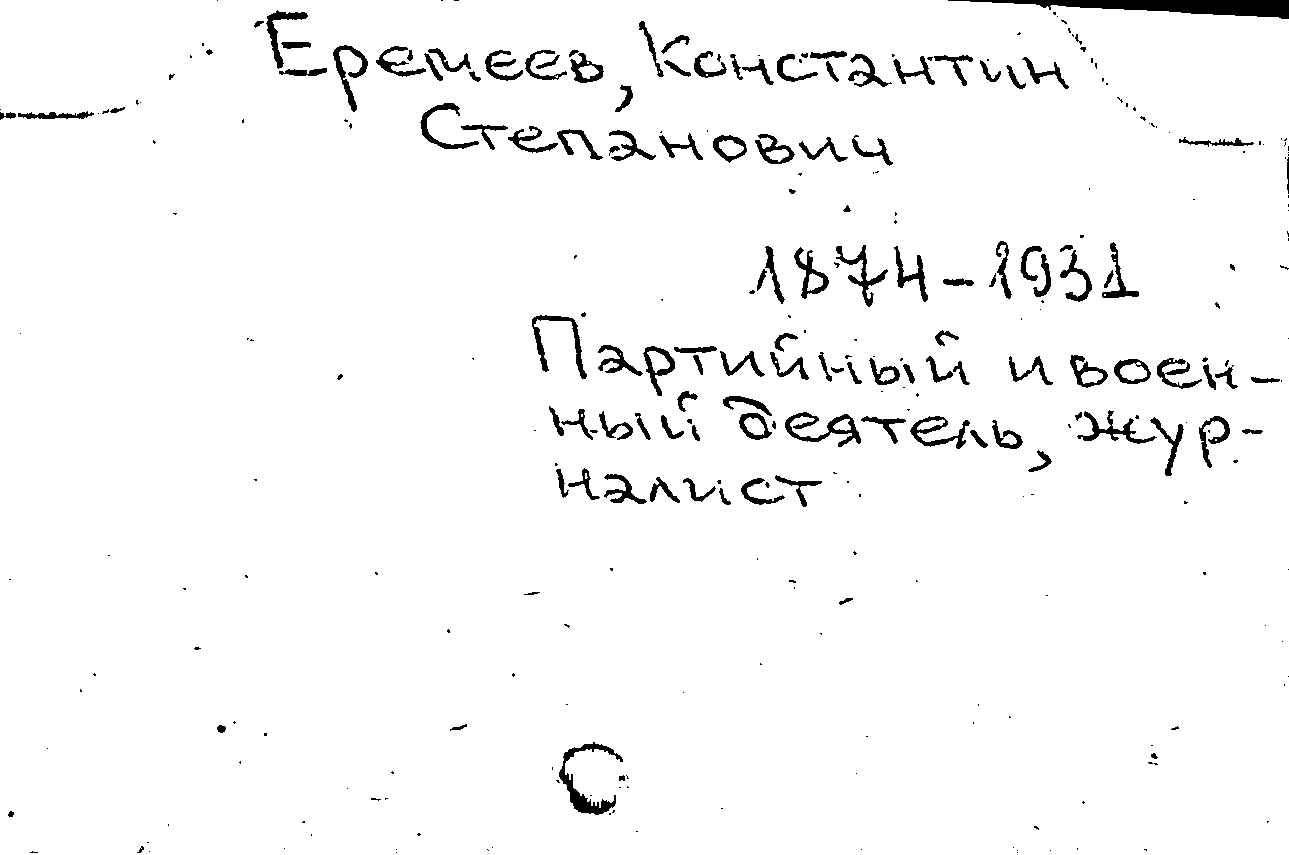 Еремеев, Константин
Степанович
1874-1931
Партийный и воен-
ный деятель, жур-
налист